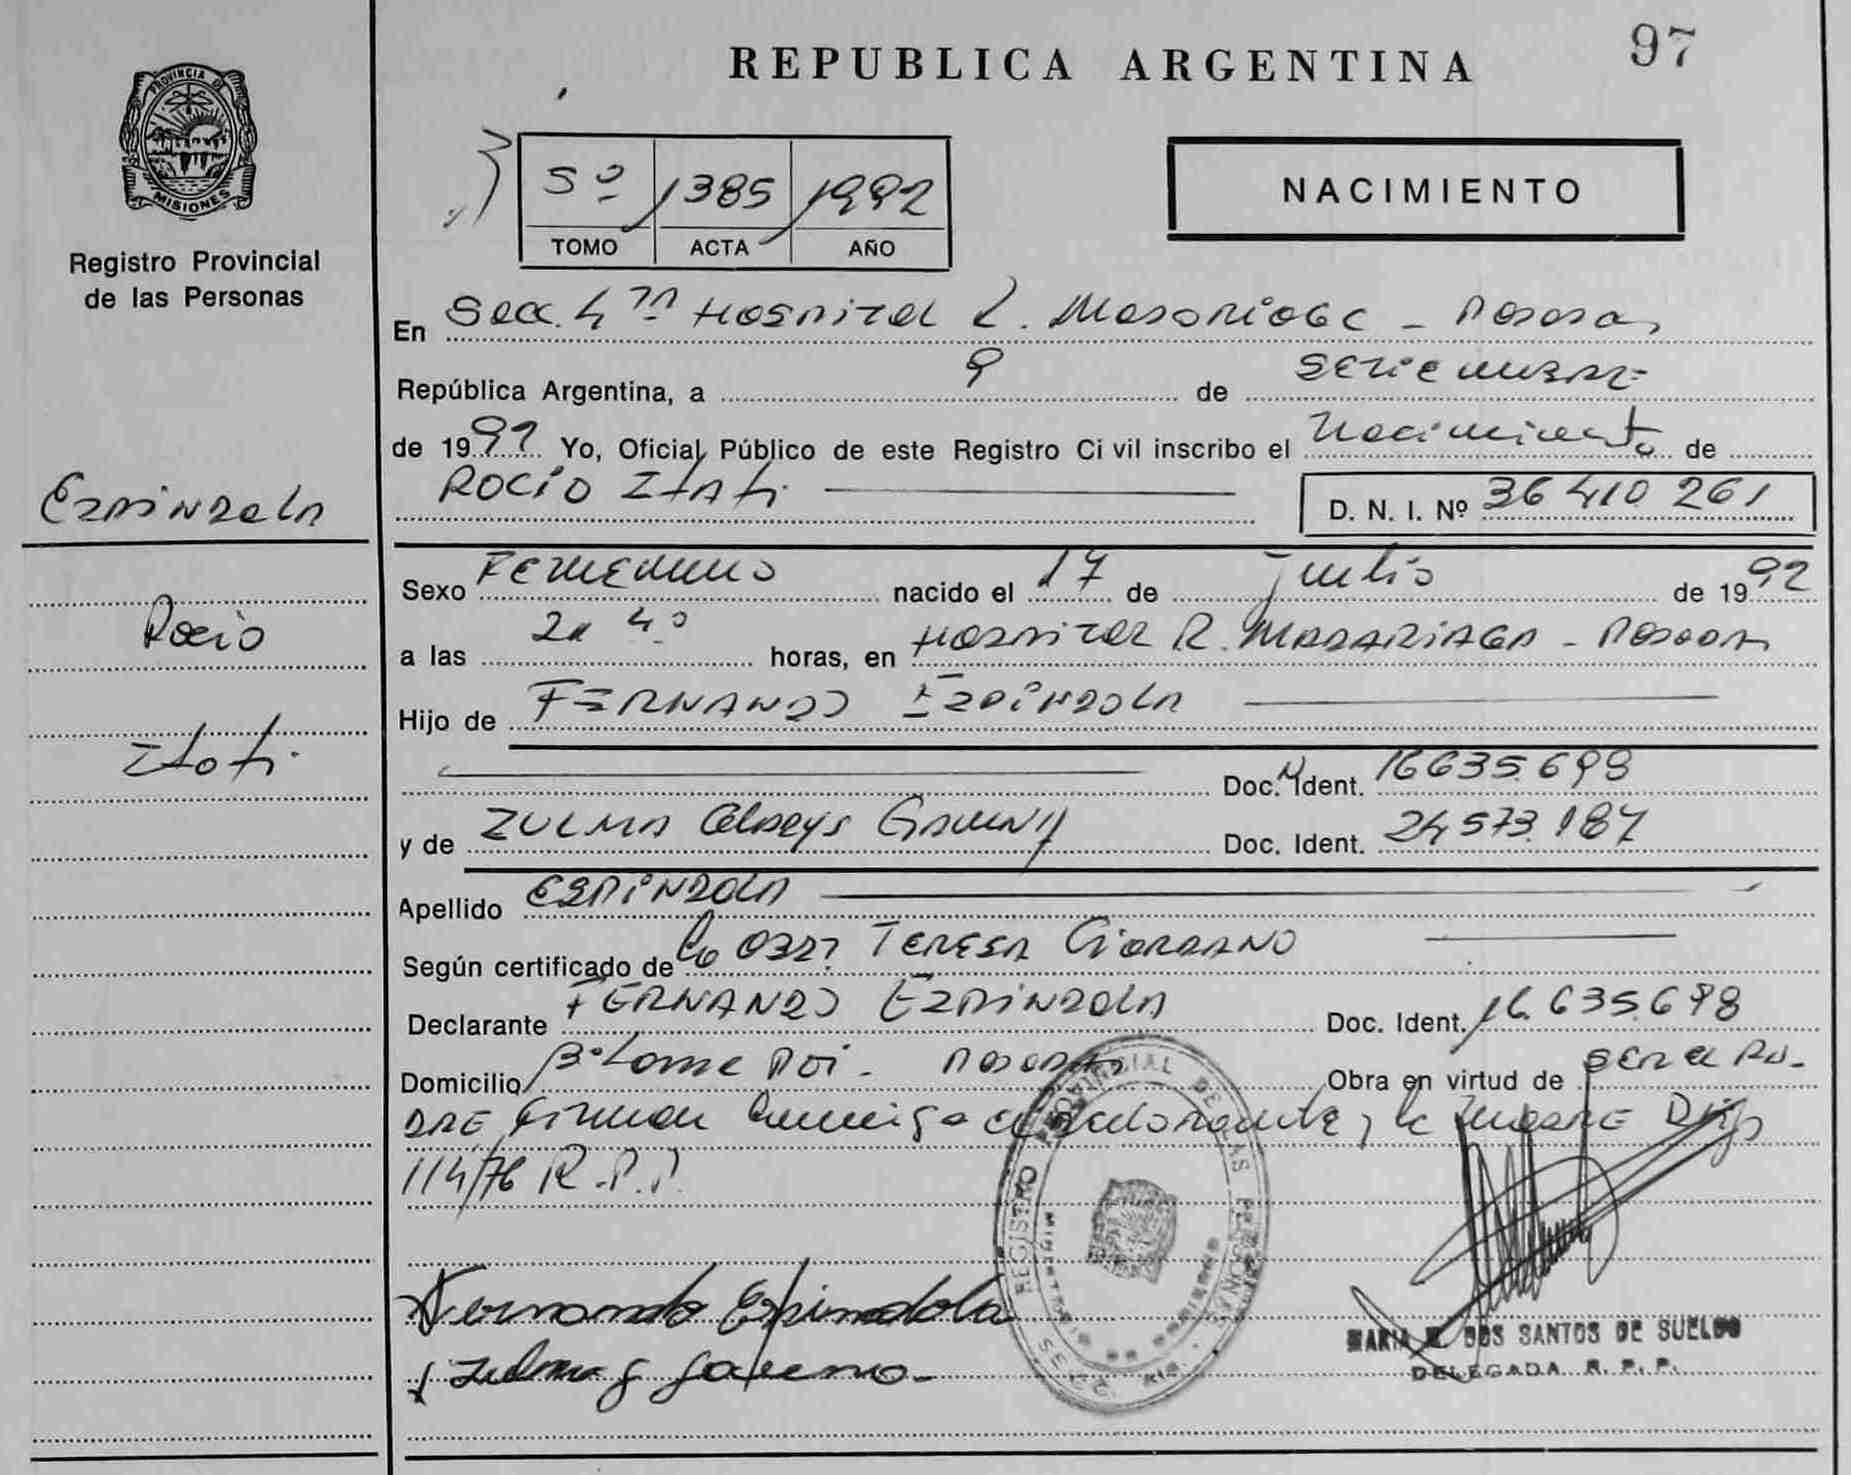 97
REPUBLICA ARGENTINA
PROVINCIA DE
MISIONES
Registro Provincial
de las Personas
5º 1385 1992
TOMO ACTA AÑO
NACIMIENTO
En Secc. 4ª Hospital R. Madariaga - Posadas
República Argentina, a 9 de Setiembre
de 1992 Yo, Oficial Público de este Registro Civil inscribo el Nacimiento de
ROCIO Itati
D. N. I. Nº 36 410 261
Espindola
Rocio
Itati
Sexo Femenino nacido el 17 de Julio de 1992
a las horas, en Hospital R. MADARIAGA - Posadas
Hijo de FERNANDO ESPINDOLA
Doc. Ident. 16635.698
y de ZULMA Gladys Doc. Ident. 24573.187
Apellido ESPINDOLA
Según certificado de TERESA GIORDANO
Declarante FERNANDO ESPINDOLA Doc. Ident. 16.635.698
Domicilio Posadas Obra en virtud de ser el Pa-
dre Firman conmigo el declarante y la madre Disp
114/76 R.P.P.
REGISTRO PROVINCIAL DE LAS PERSONAS
Fernando Espindola
Zulma G
MARIA DOS SANTOS DE SUELDO
DELEGADA R. P. P.